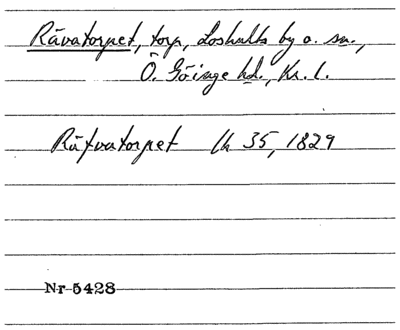 Rävatorpet, torp, Loshults by o. sn.,
Ö. Göinge hd., Kr. l.
Räfvatorpet lk 35, 1829
Nr 5428